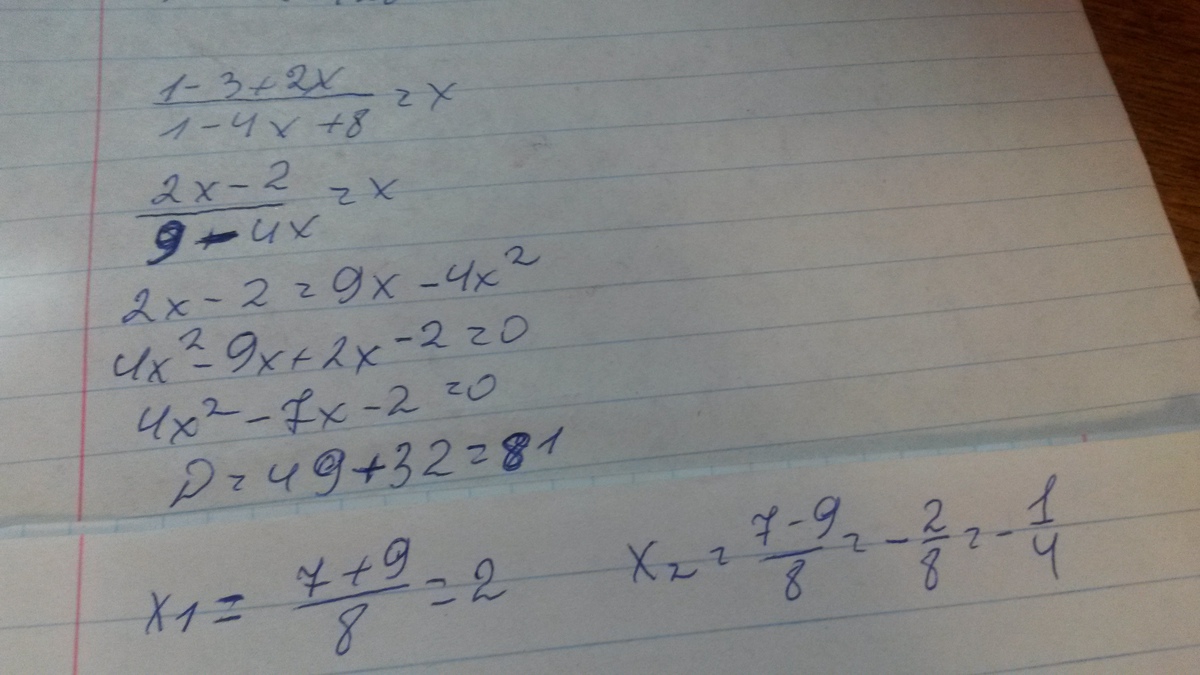 (1-3+2x)/(1-4x+8) = x
(2x-2)/(9-4x) = x
2x-2=9x-4x²
4x²-9x+2x-2=0
4x²-7x-2=0
D=49+32=81
x1 = (7+9)/8 = 2 x2 = (7-9)/8 = -2/8 = -1/4